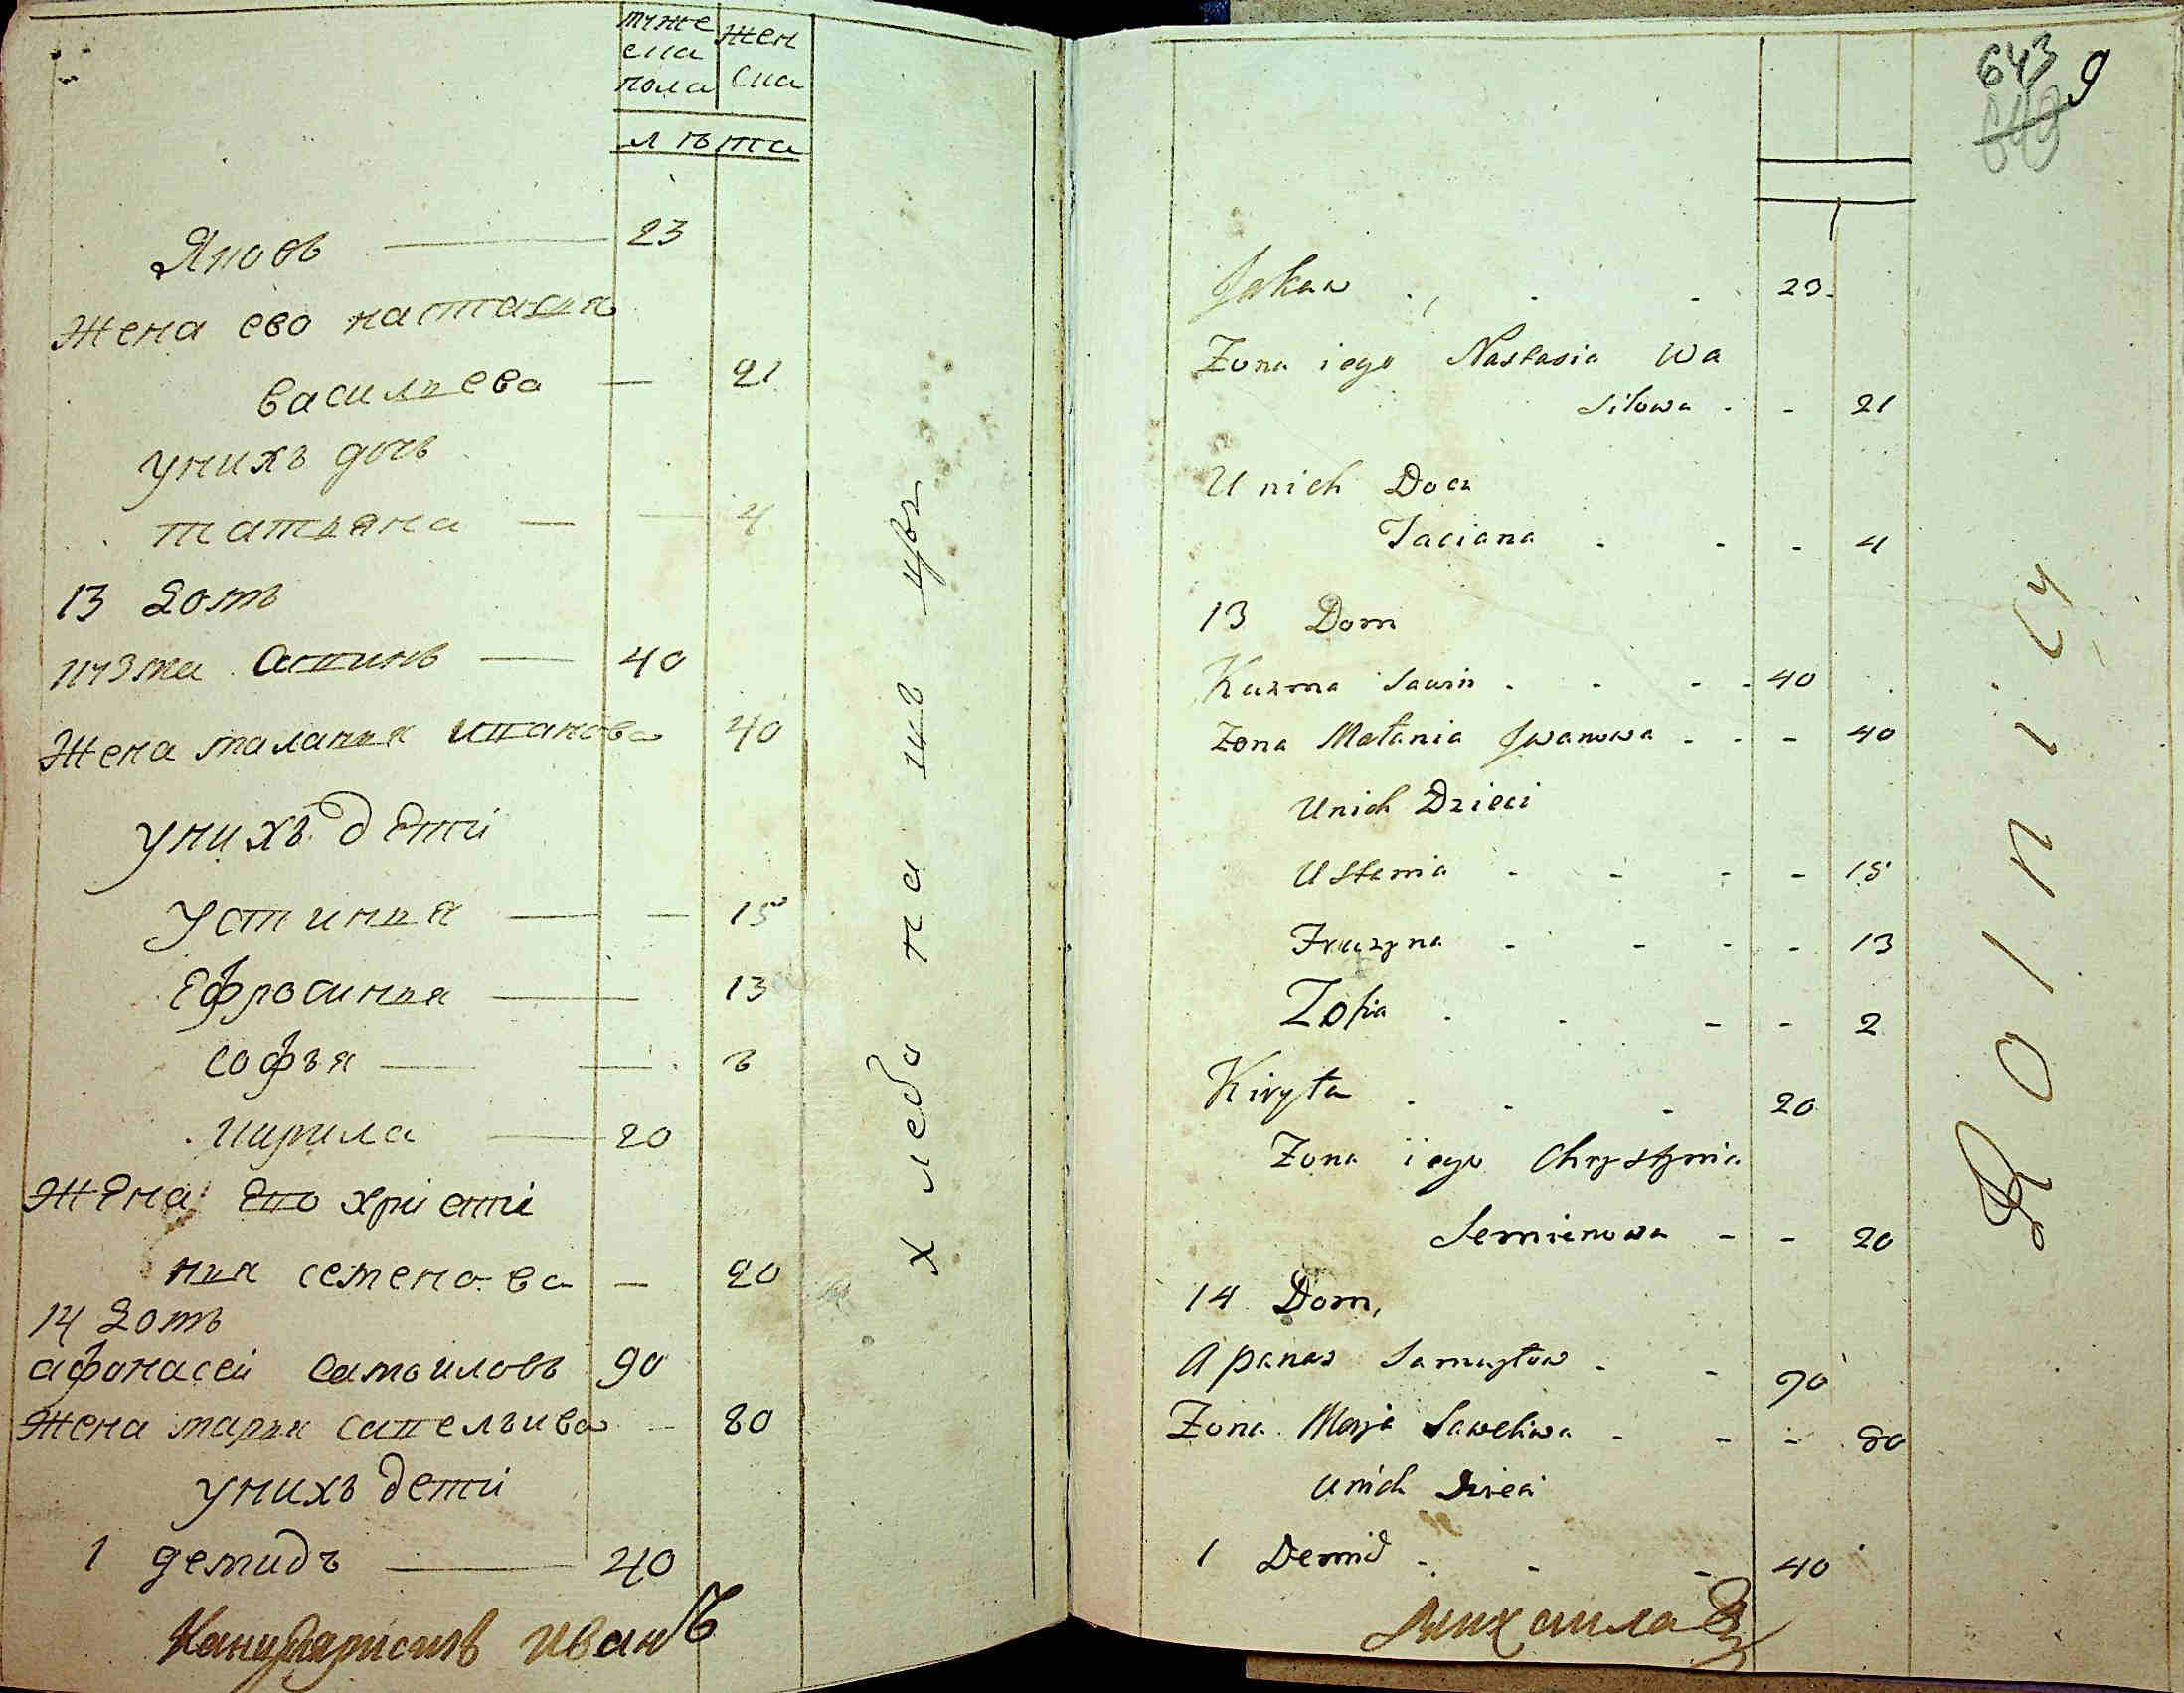 муже Жен
ска ска
пола
лѣта
Яковъ 23
Жена ево настасия
василиева 21
унихъ дочь
татияна 4
13 Домъ
кузма Савинъ 40
Жена малания иванова 40
унихъ дети
Устиния 15
Ефросиния 13
софья 2
кирила 20
Жена ево христи
ния семенова 20
14 Домъ
афонасеи самоиловъ 90
Жена марья савельива 80
унихъ дети
1 демидъ 40
Иванъ
хлебопашцы
643 9
649
Jakaw 23
Zona iego Nastasia Wa
silowa 21
U nich Docz
Taciana 4
13 Dom
Kuzma Sawin 40
Zona Małania Jwanowa 40
Unich Dzieci
Ustenia 15
Fruzyna 13
Zofia 2
Kiryła 20
Zona iego Chrystynia
Semienowa 20
14 Dom
Apanas Samuyłow 90
Zona Marja Saweliwa 80
Unich Dzieci
1 Demid 40
михаила
Rolnicy